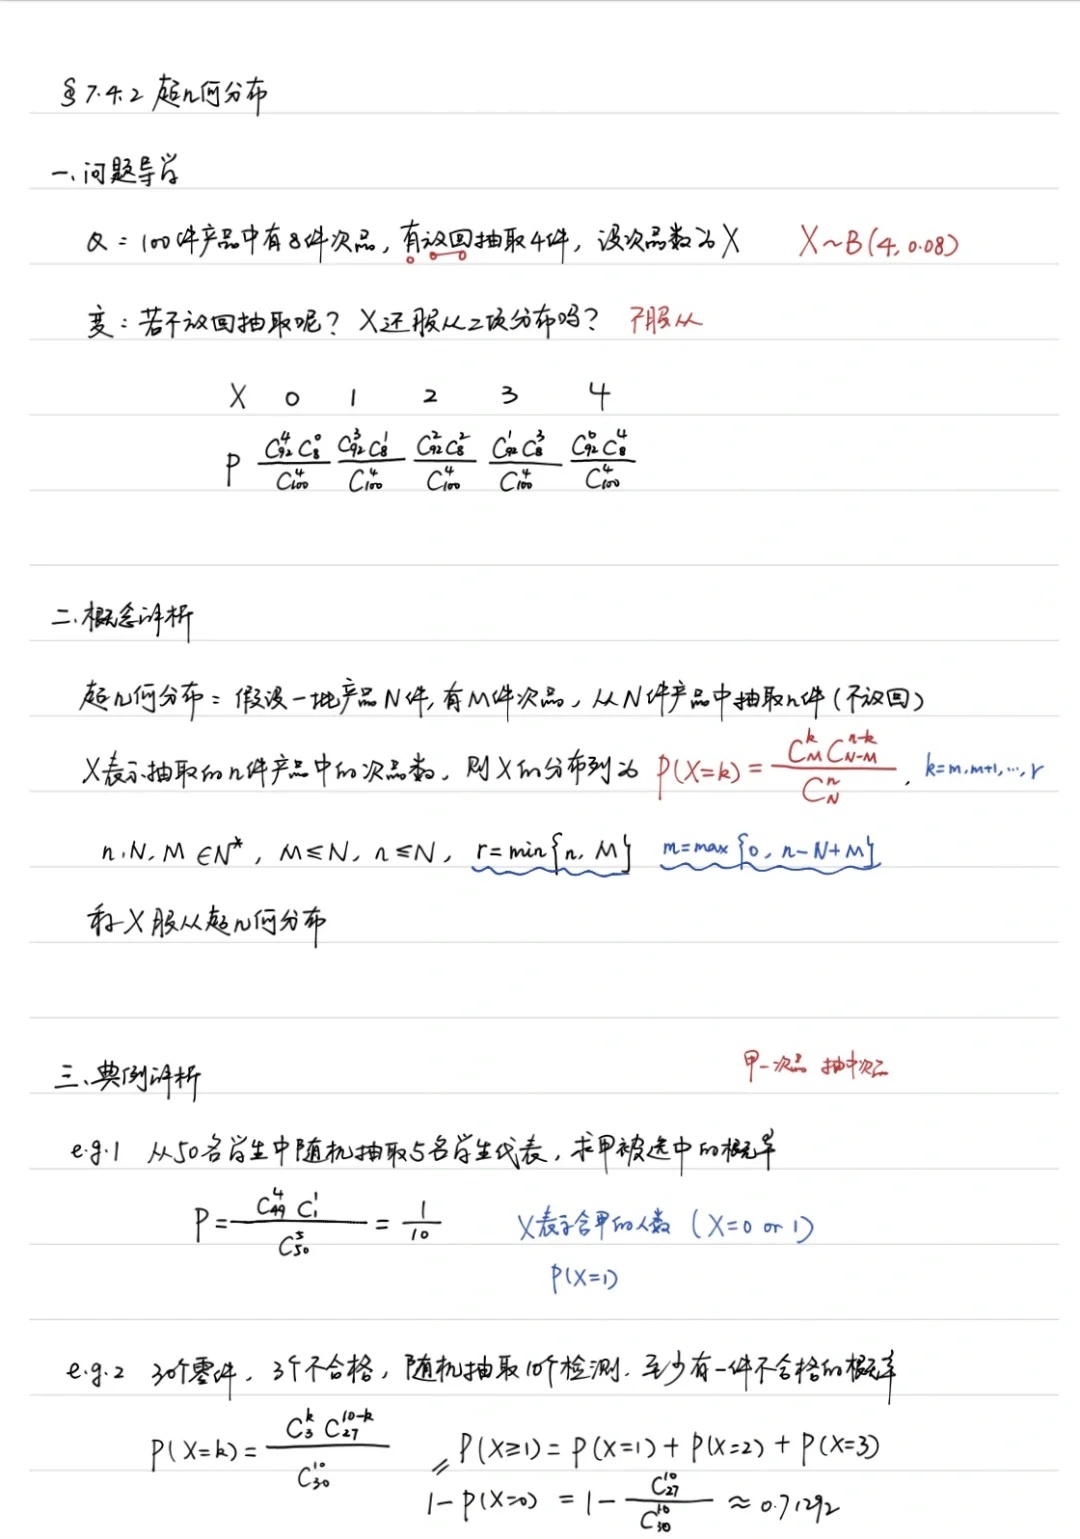 §7.4.2 超几何分布
一、问题导学
Q：100件产品中有8件次品，有放回抽取4件，设次品数为X X~B(4, 0.08)
变：若不放回抽取呢？X还服从二项分布吗？ 不服从
X 0 1 2 3 4
P C₉₂⁴C₈⁰/C₁₀₀⁴ C₉₂³C₈¹/C₁₀₀⁴ C₉₂²C₈²/C₁₀₀⁴ C₉₂¹C₈³/C₁₀₀⁴ C₉₂⁰C₈⁴/C₁₀₀⁴
二、概念评析
超几何分布：假设一批产品N件，有M件次品，从N件产品中抽取n件(不放回)
X表示抽取的n件产品中的次品数，则X的分布列为 P(X=k) = C_M^k C_{N-M}^{n-k}/C_N^n , k=m, m+1, …, r
n, N, M ∈N*, M≤N, n≤N, r=min{n, M} m=max{0, n-N+M}
称X服从超几何分布
三、典例评析 甲-次品 抽中次品
e.g.1 从50名学生中随机抽取5名学生代表，求甲被选中的概率
P= C₄₉⁴ C₁¹/C₅₀⁵ = 1/10 X表示含甲的人数 (X=0 or 1)
P(X=1)
e.g.2 30个零件，3个不合格，随机抽取10个检测，至少有一件不合格的概率
P(X=k) = C₃^k C₂₇^{10-k}/C₃₀¹⁰ P(X≥1) = P(X=1) + P(X=2) + P(X=3)
1-P(X=0) = 1- C₂₇¹⁰/C₃₀¹⁰ ≈ 0.71292